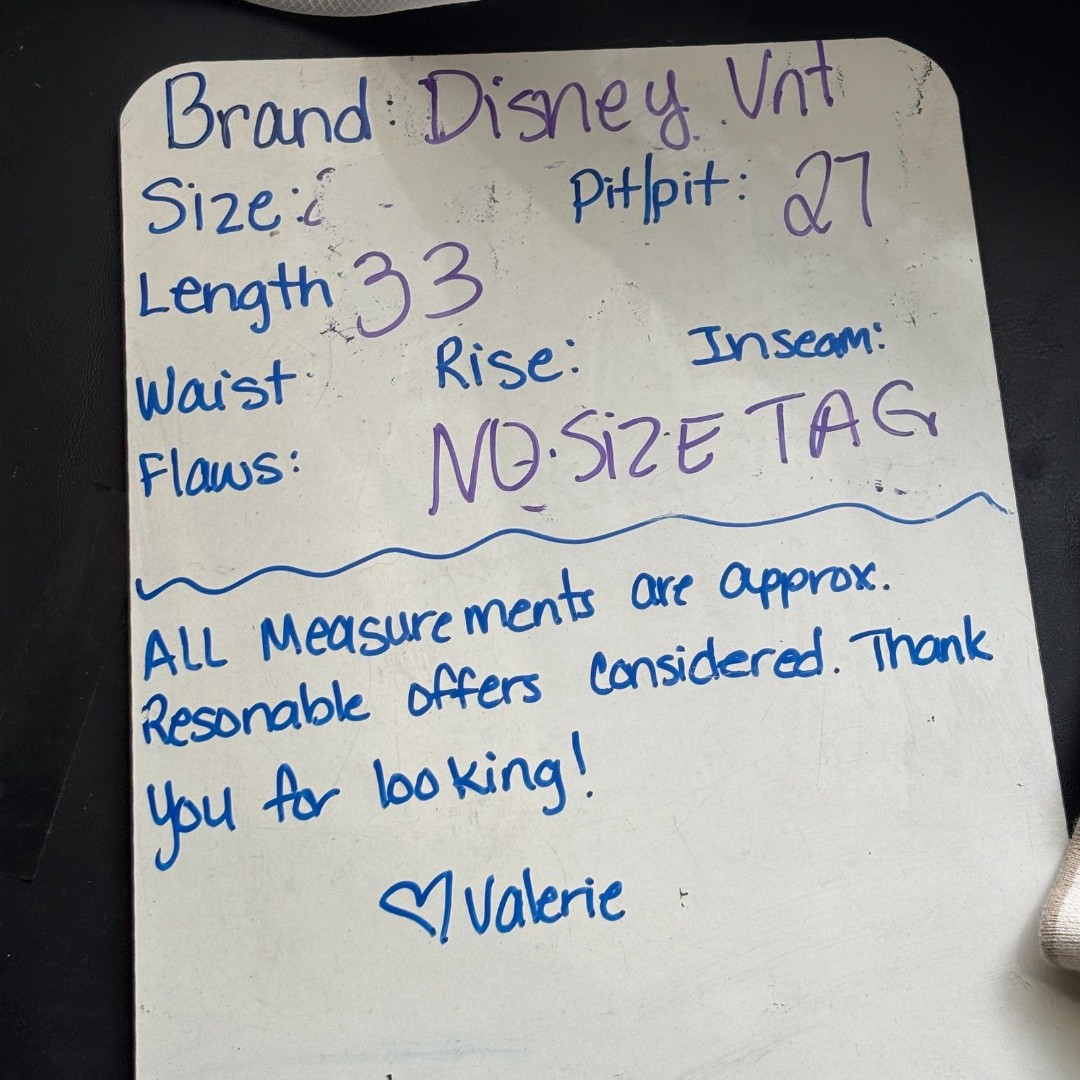 Brand: Disney Vnt
Size: Pit/pit: 27
Length 33
Waist: Rise: Inseam:
Flaws: NO SiZE TAG
ALL Measurements are approx.
Resonable offers considered. Thank
you for looking!
♡ Valerie